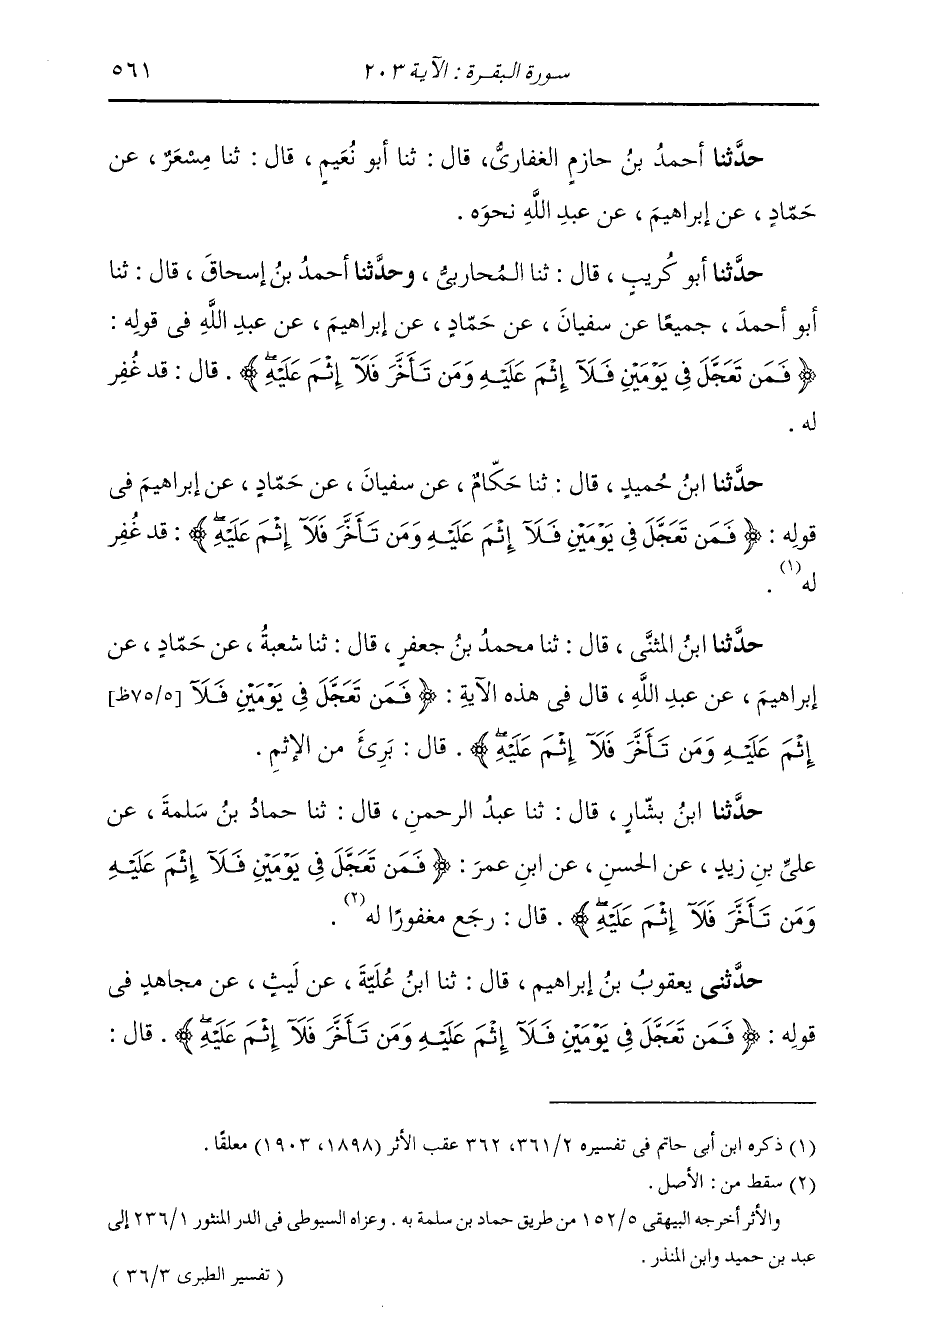 سورة البقرة : الآية ٢٠٣ ٥٦١
حدَّثنا أحمدُ بنُ حازمٍ الغفارىُّ، قال : ثنا أبو نُعَيمٍ ، قال : ثنا مِسْعَرٌ ، عن
حَمّادٍ ، عن إبراهيمَ ، عن عبدِ اللَّهِ نحوَه .
حدَّثنا أبو كُريبٍ ، قال : ثنا المُحاربىُّ ، وحدَّثنا أحمدُ بنُ إسحاقَ ، قال : ثنا
أبو أحمدَ ، جميعًا عن سفيانَ ، عن حَمّادٍ ، عن إبراهيمَ ، عن عبدِ اللَّهِ فى قولِه :
﴿ فَمَن تَعَجَّلَ فِي يَوْمَيْنِ فَلَآ إِثْمَ عَلَيْهِ وَمَن تَأَخَّرَ فَلَآ إِثْمَ عَلَيْهِۖ ﴾ . قال : قد غُفِر
له .
حدَّثنا ابنُ حُميدٍ ، قال : ثنا حَكّامٌ ، عن سفيانَ ، عن حَمّادٍ ، عن إبراهيمَ فى
قولِه : ﴿ فَمَن تَعَجَّلَ فِي يَوْمَيْنِ فَلَآ إِثْمَ عَلَيْهِ وَمَن تَأَخَّرَ فَلَآ إِثْمَ عَلَيْهِۖ ﴾ : قد غُفِر
له(١) .
حدَّثنا ابنُ المثنَّى ، قال : ثنا محمدُ بنُ جعفرٍ ، قال : ثنا شعبةُ ، عن حَمّادٍ ، عن
إبراهيمَ ، عن عبدِ اللَّهِ ، قال فى هذه الآيةِ : ﴿ فَمَن تَعَجَّلَ فِي يَوْمَيْنِ فَلَآ [٧٥/٥ظ]
إِثْمَ عَلَيْهِ وَمَن تَأَخَّرَ فَلَآ إِثْمَ عَلَيْهِۖ ﴾ . قال : بَرِئَ من الإثمِ .
حدَّثنا ابنُ بشّارٍ ، قال : ثنا عبدُ الرحمنِ ، قال : ثنا حمادُ بنُ سَلمةَ ، عن
علىِّ بنِ زيدٍ ، عن الحسنِ ، عن ابنِ عمرَ : ﴿ فَمَن تَعَجَّلَ فِي يَوْمَيْنِ فَلَآ إِثْمَ عَلَيْهِ
وَمَن تَأَخَّرَ فَلَآ إِثْمَ عَلَيْهِۖ ﴾ . قال : رجَع مغفورًا له(٢) .
حدَّثنى يعقوبُ بنُ إبراهيم ، قال : ثنا ابنُ عُلَيَّةَ ، عن لَيثٍ ، عن مجاهدٍ فى
قولِه : ﴿ فَمَن تَعَجَّلَ فِي يَوْمَيْنِ فَلَآ إِثْمَ عَلَيْهِ وَمَن تَأَخَّرَ فَلَآ إِثْمَ عَلَيْهِۖ ﴾ . قال :
(١) ذكره ابن أبى حاتم فى تفسيره ٣٦١/٢، ٣٦٢ عقب الأثر (١٨٩٨، ١٩٠٣) معلقًا .
(٢) سقط من : الأصل .
والأثر أخرجه البيهقى ١٥٢/٥ من طريق حماد بن سلمة به . وعزاه السيوطى فى الدر المنثور ٢٣٦/١ إلى
عبد بن حميد وابن المنذر .
( تفسير الطبرى ٣٦/٣ )